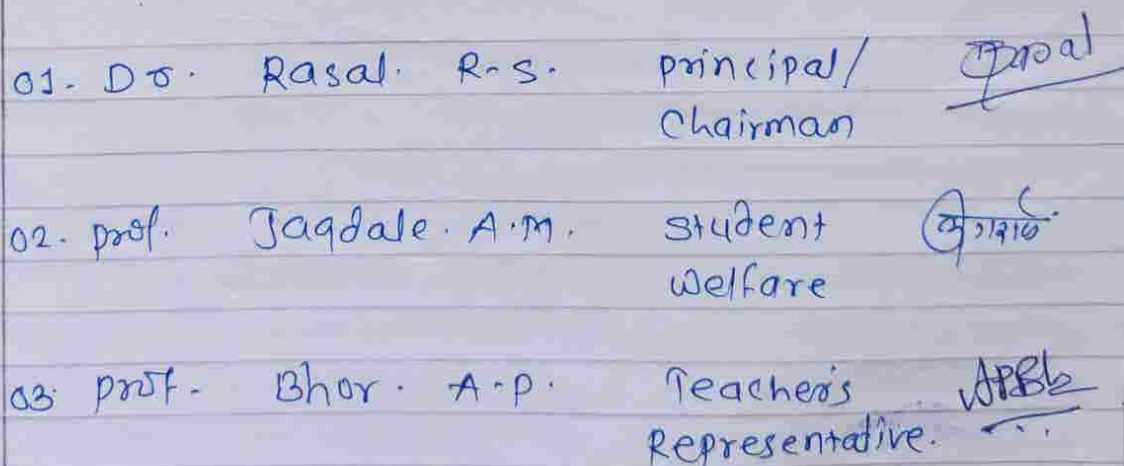 01. Dr. Rasal. R.S. principal/
Chairman
02. prof. Jagdale. A.M. student
welfare
03. prof. Bhor. A.P. Teacher's
Representative.